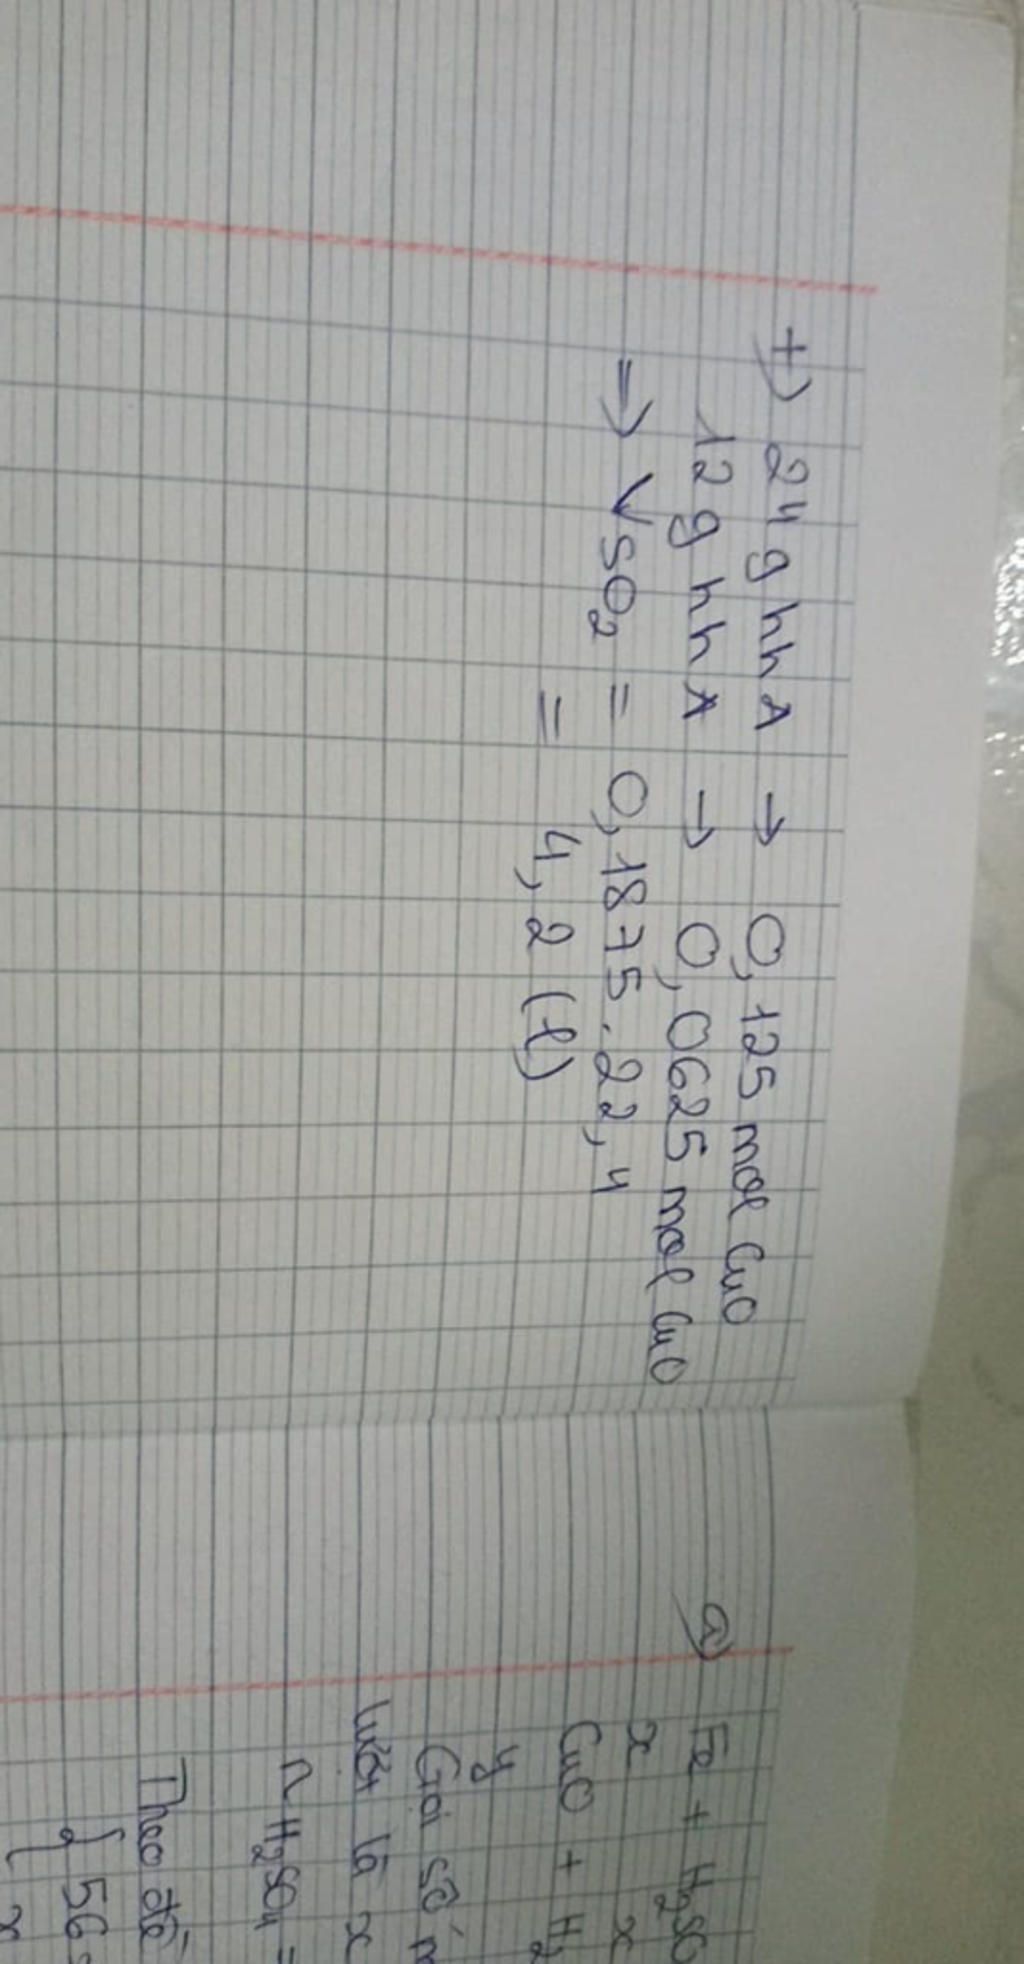 +) 24g hh A → 0,125 mol CuO
12g hh A → 0,0625 mol CuO
=> VSO2 = 0,1875.22,4
= 4,2 (l)
a) Fe + H2SO
x x
CuO + H2
y
Gọi số m
lượt là x
nH2SO4 =
Theo đề
{ 56
x